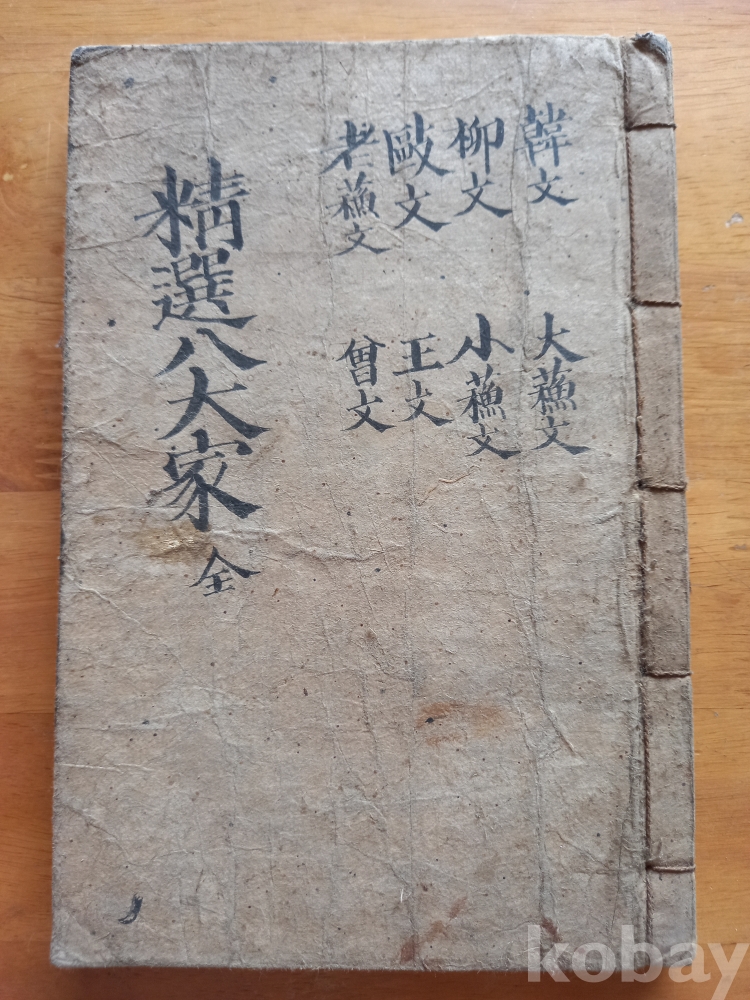 韓文
柳文
歐文
老蘓文
大蘓文
小蘓文
王文
曾文
精選八大家 全
kobay